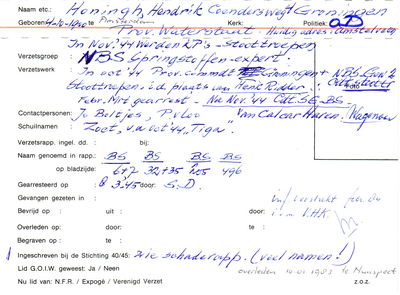 Naam etc.: Honingh, Hendrik Coendersweg 7 Groningen
Geboren: te Amsterdam Kerk: Politiek: OD
Prov. Waterstaat Huidig adres: Amstelveen
In Nov. '44 werden KP's - Stoottroepen
Verzetsgroep NBS Springstoffen-expert.
Verzetswerk In oct '44 Prov. commdt Groningen NBS
Stoottroepen. i.d. plaats van Henk Ridder
Febr. Mrt gearrest. Na Nov '44 Cdt. SG. BS.
Contactpersonen: Jo Boltjes, P v Loo "van Calcar-Haren, Wagenaar
Schuilnamen: "Zoet", na oct '44 "Tiga"
Verzetsrapp. ingel. dd. : bij:
Naam genoemd in rapp.: BS BS BS BS
op bladzijde: 6+7 32+35 496
Gearresteerd op 8 3.45 door: S.D.
Gevangen gezeten in :
Bevrijd op : uit : door:
Overleden op: te : door:
Begraven op : te :
Ingeschreven bij de Stichting 40/45: zie schaderapp. (veel namen!)
Lid G.O.I.W. geweest: Ja / Neen overleden 10-01 1983 te Nunspeet
Nu lid van: N.F.R. / Expogé / Verenigd Verzet z.o.z.